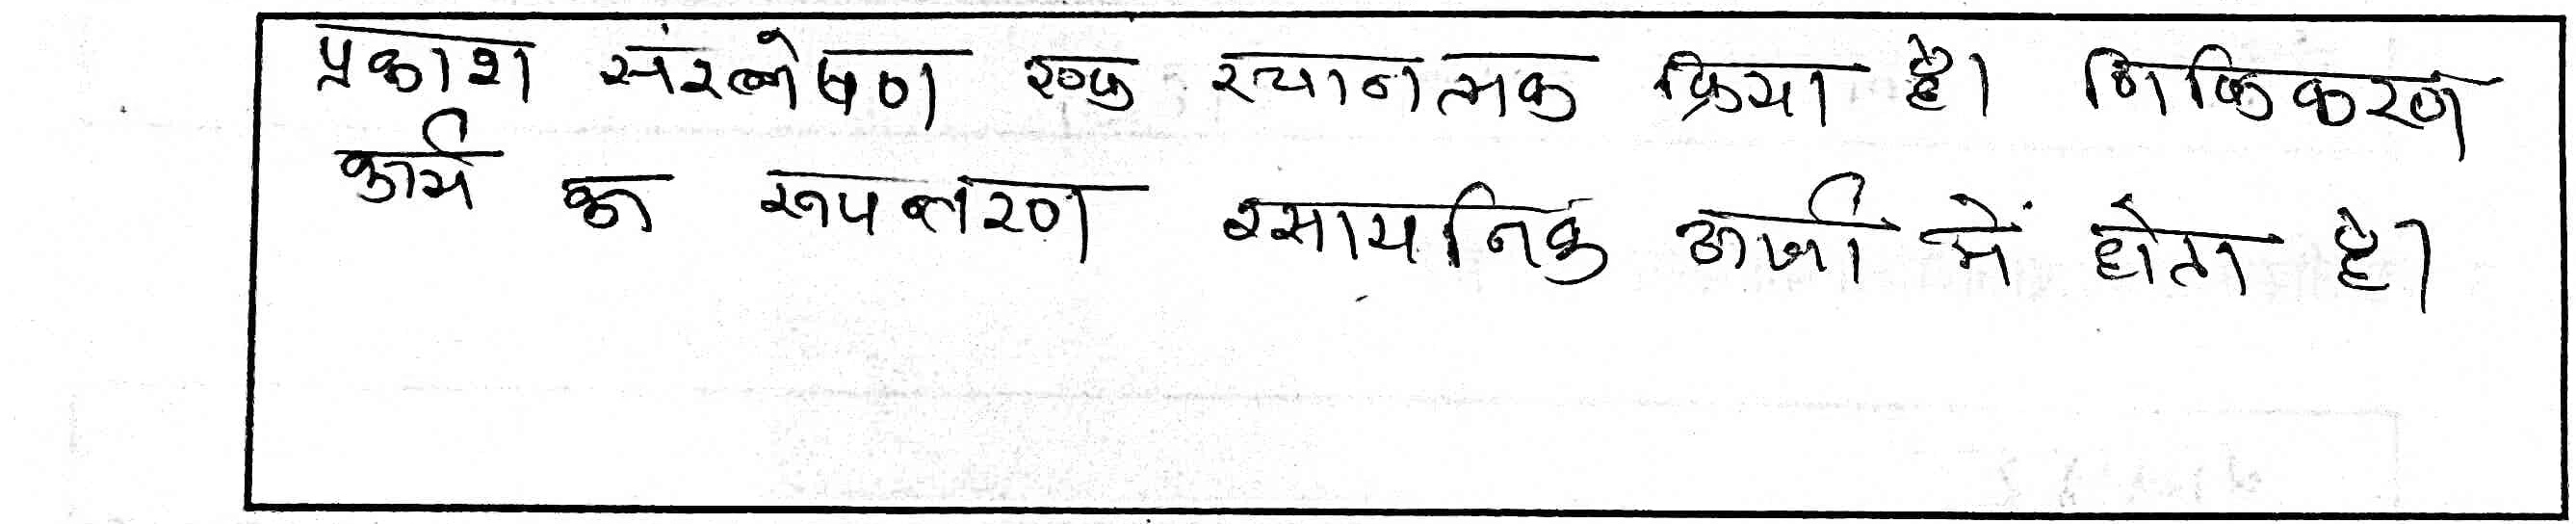 प्रकाश संश्लेषण एक रचानत्मक क्रिया है। विकिकरण
कार्य क रूपन्तरण रसायनिक ऊर्जा में होता है।